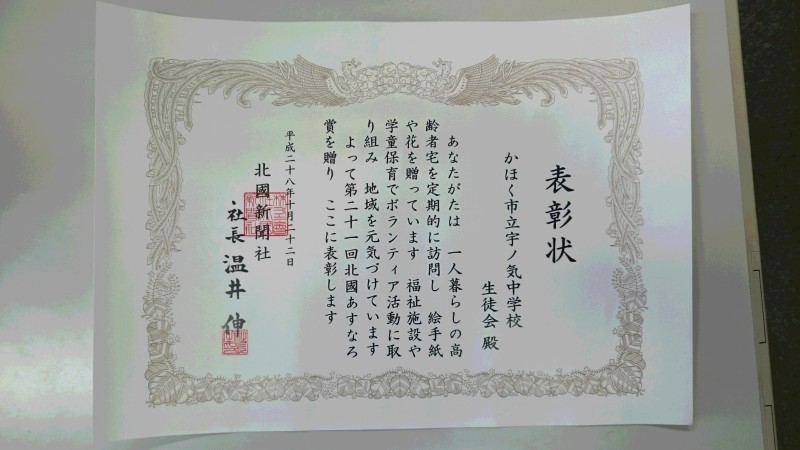 表彰状
かほく市立宇ノ気中学校
生徒会 殿
あなたがたは 一人暮らしの高
齢者宅を定期的に訪問し 絵手紙
や花を贈っています 福祉施設や
学童保育でボランティア活動に取
り組み 地域を元気づけています
よって第二十一回北國あすなろ
賞を贈り ここに表彰します
平成二十八年十月二十二日
北國新聞社
社長 温井 伸